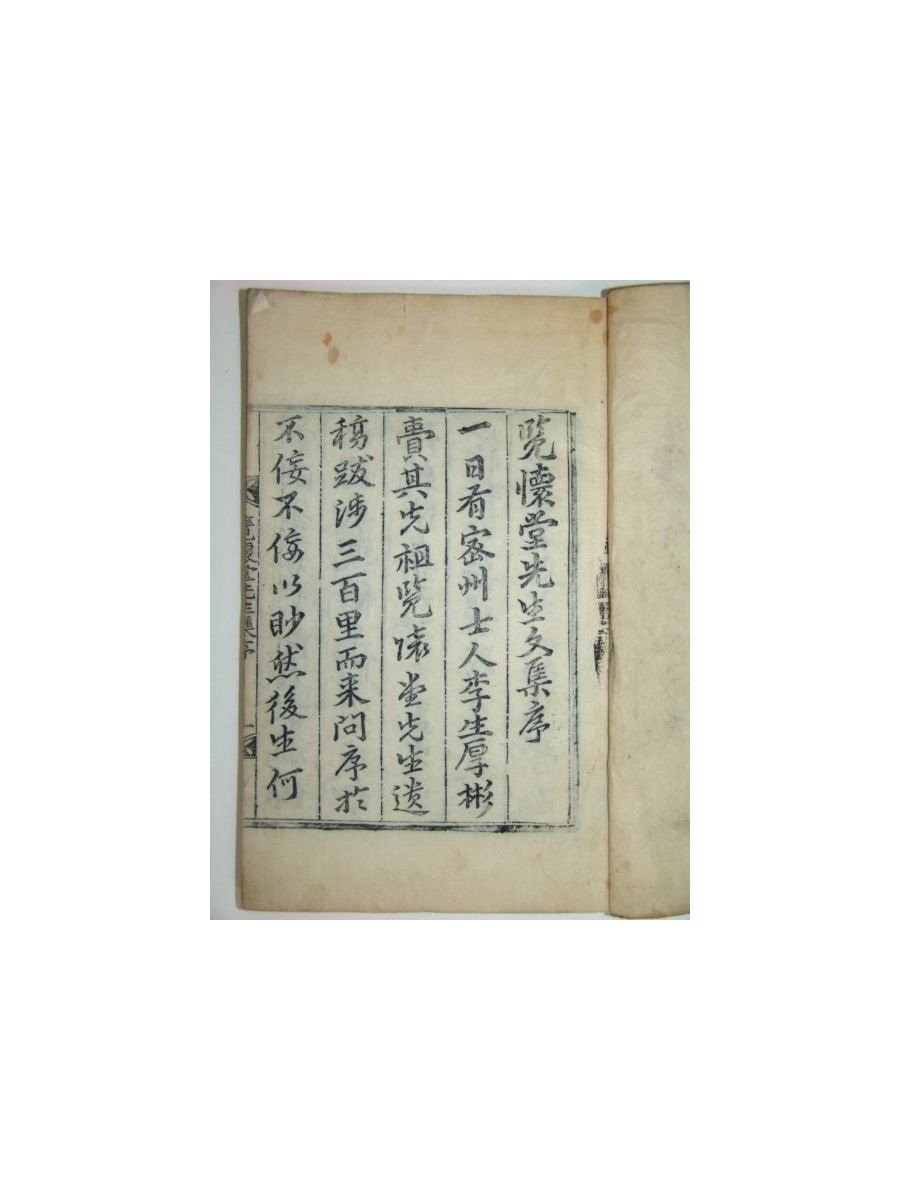 覽懷堂先生文集序
一日有密州士人李生厚彬
賷其先祖覽懷堂先生遺
稿跋涉三百里而来問序於
不佞不佞以眇然後生何
覽懷堂先生集序